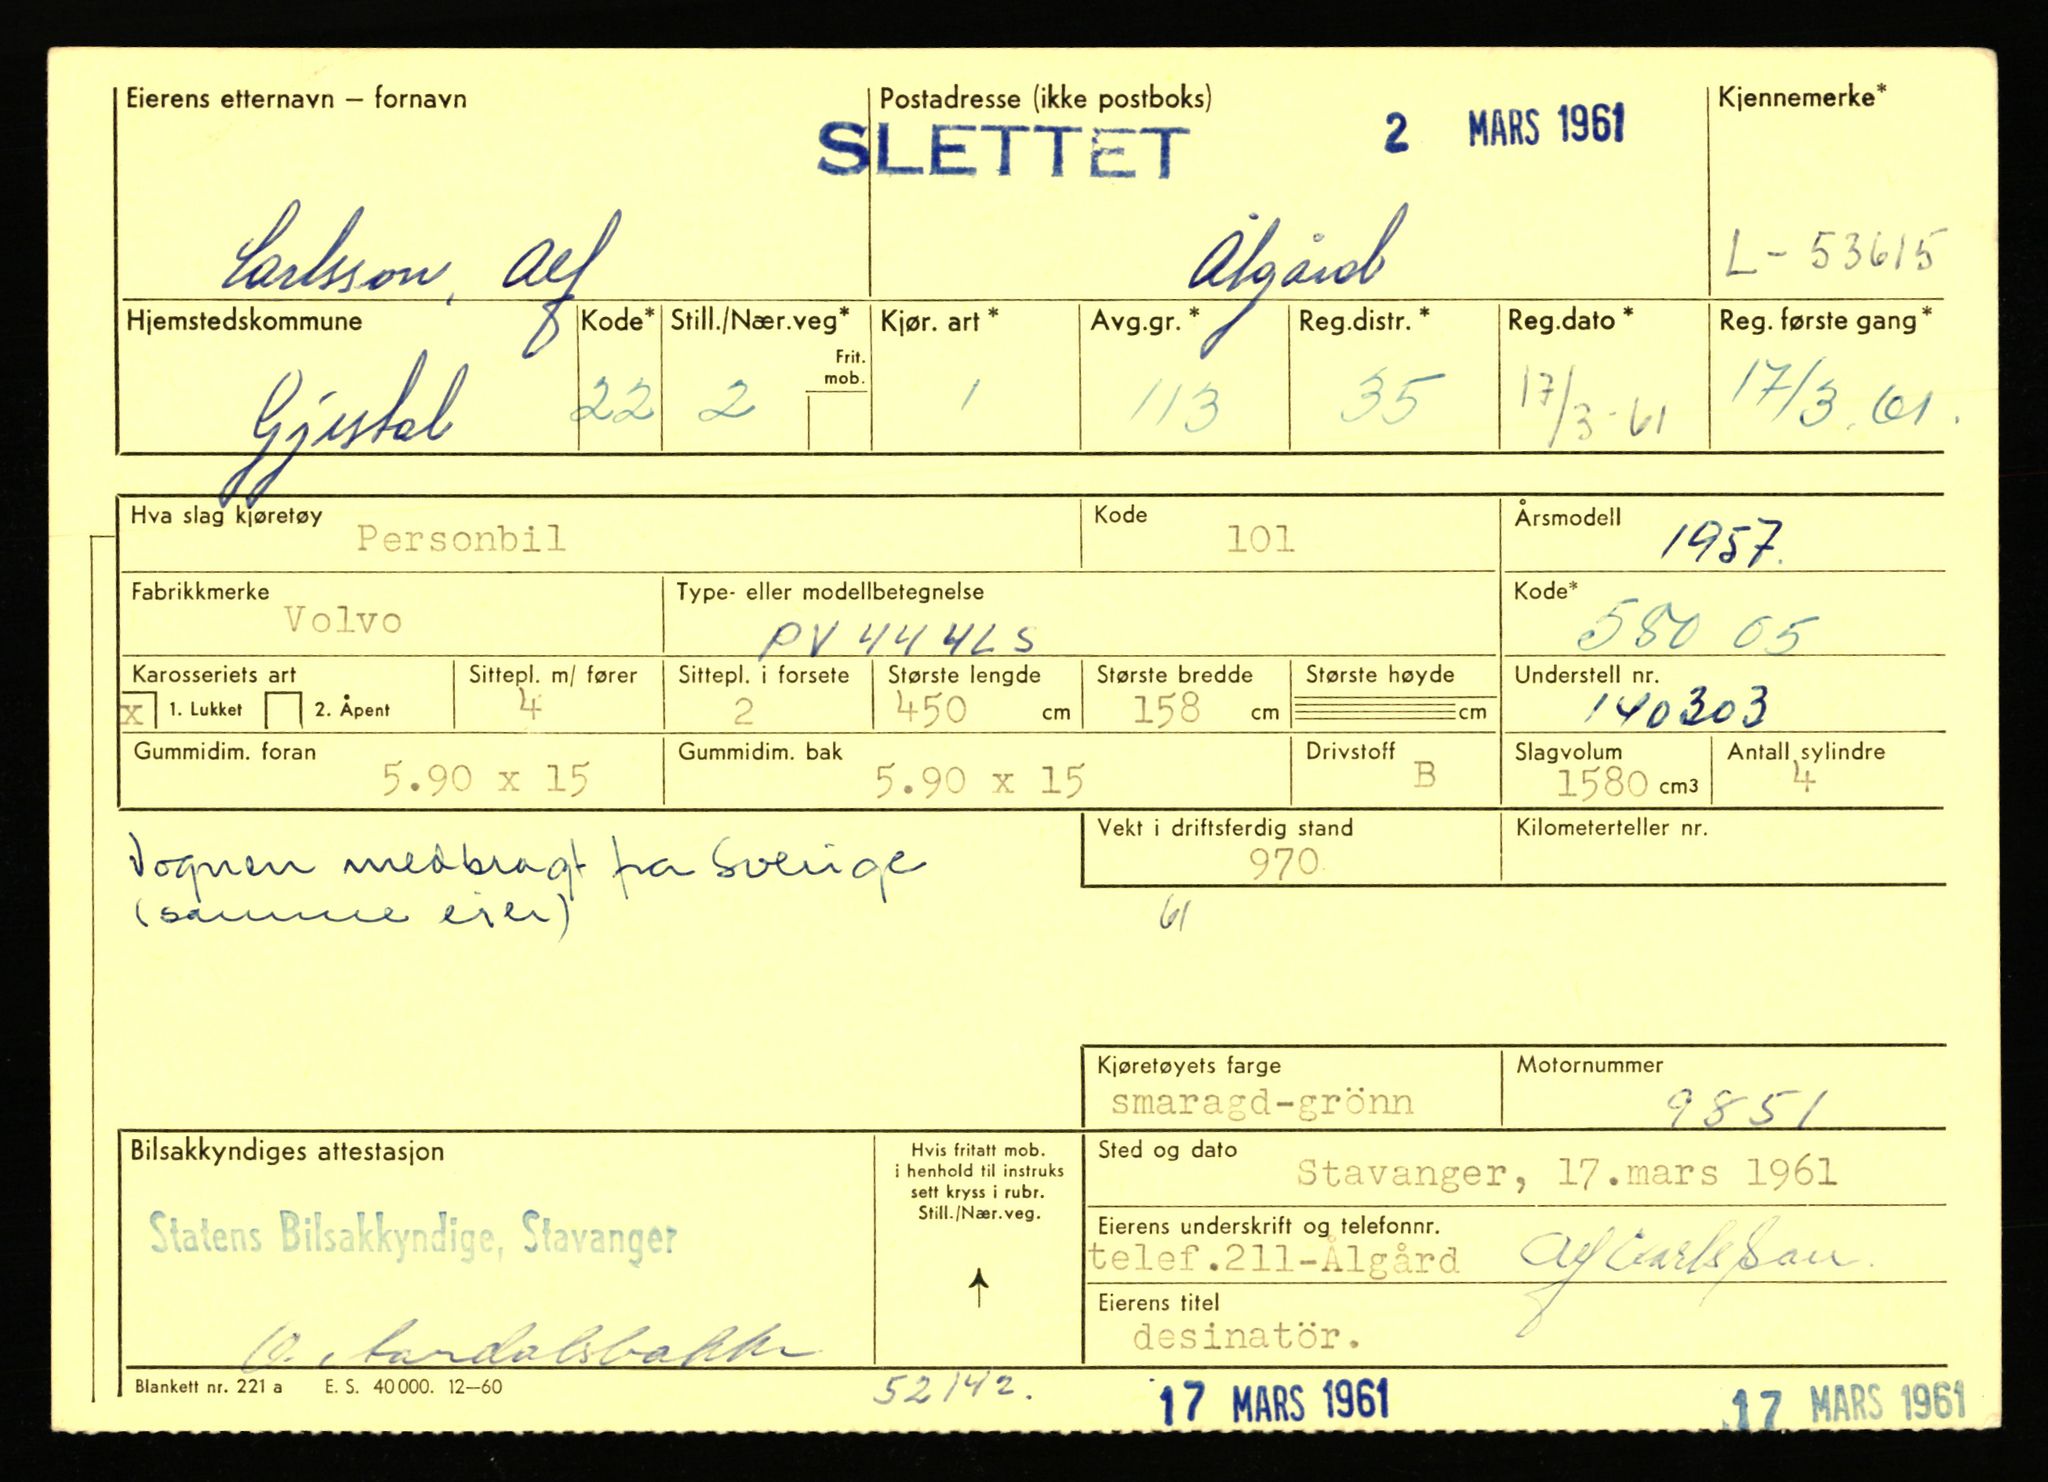 Eierens etternavn – fornavn Postadresse (ikke postboks) Kjennemerke*
SLETTET 2 MARS 1961
Carlsson, Alf Ålgård L - 53615
Hjemstedskommune Kode* Still./Nær.veg* Kjør. art* Avg.gr.* Reg.distr.* Reg.dato* Reg. første gang*
Frit. mob.
Gjestal 22 2 1 113 35 17/3-61 17/3.61.
Hva slag kjøretøy Kode Årsmodell
Personbil 101 1957.
Fabrikkmerke Type- eller modellbetegnelse Kode*
Volvo PV 444LS 580 05
Karosseriets art Sittepl. m/ fører Sittepl. i forsete Største lengde Største bredde Største høyde Understell nr.
x 1. Lukket 2. Åpent 4 2 450 cm 158 cm cm 140303
Gummidim. foran Gummidim. bak Drivstoff Slagvolum Antall sylindre
5.90 x 15 5.90 x 15 B 1580 cm3 4
Vekt i driftsferdig stand Kilometerteller nr.
970
Vognen medbragt fra Sverige
(samme eier)
61
Kjøretøyets farge Motornummer
smaragd-grönn 9851
Bilsakkyndiges attestasjon
Hvis fritatt mob.
i henhold til instruks
sett kryss i rubr.
Still./Nær.veg.
Sted og dato
Stavanger, 17.mars 1961
Statens Bilsakkyndige, Stavanger
Eierens underskrift og telefonnr.
telef.211-Ålgård Alf Carlsson.
Eierens titel
desinatör.
Blankett nr. 221 a E. S. 40 000. 12–60
52142.
17 MARS 1961 17 MARS 1961